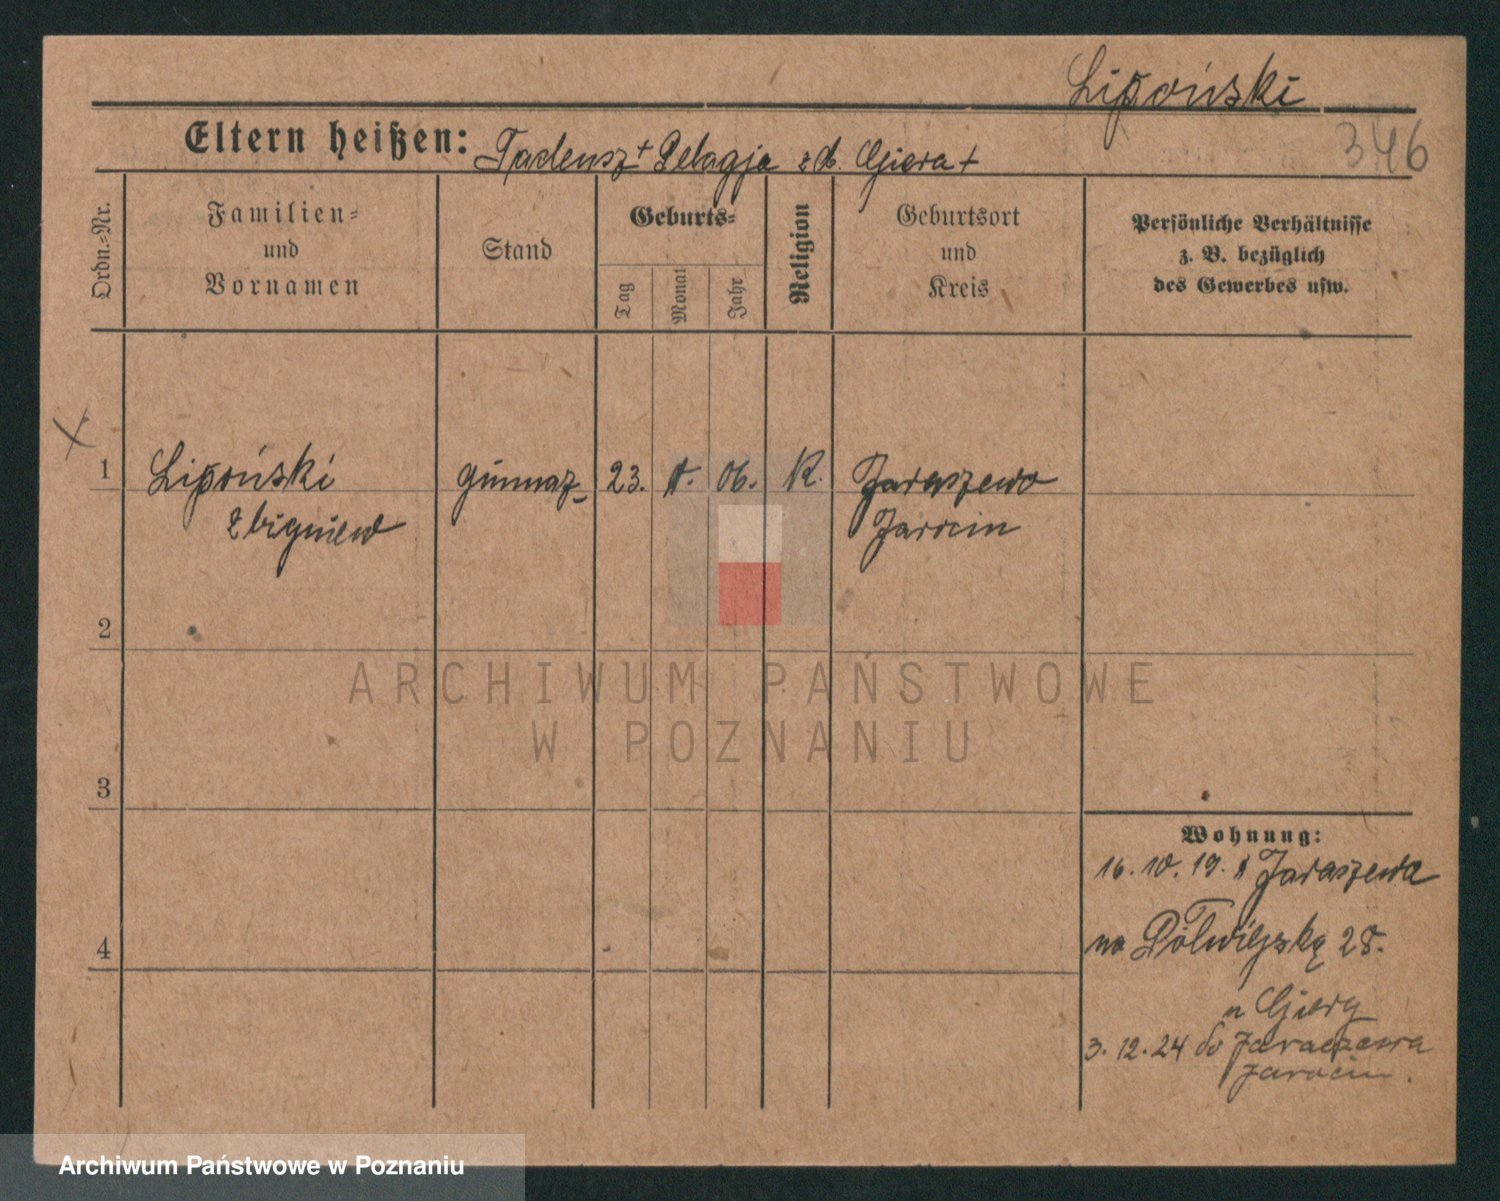 Lipoński
346
Eltern heißen: Tadeusz + Pelagja z d. Giera +
Ordn.-Nr.
Familien-
und
Vornamen
Stand
Geburts-
Tag
Monat
Jahr
Religion
Geburtsort
und
Kreis
Persönliche Verhältnisse
z. B. bezüglich
des Gewerbes usw.
1 Lipoński gimnaz. 23. 06. K. Jaraszewo
Zbigniew Jarocin
2
3
4
Wohnung:
16. 10. 19. Jaraszewa
na Półwiejską 28.
u Giery
3. 12. 24 do Jaraczewa
Jarocin.
ARCHIWUM PAŃSTWOWE
W POZNANIU
Archiwum Państwowe w Poznaniu